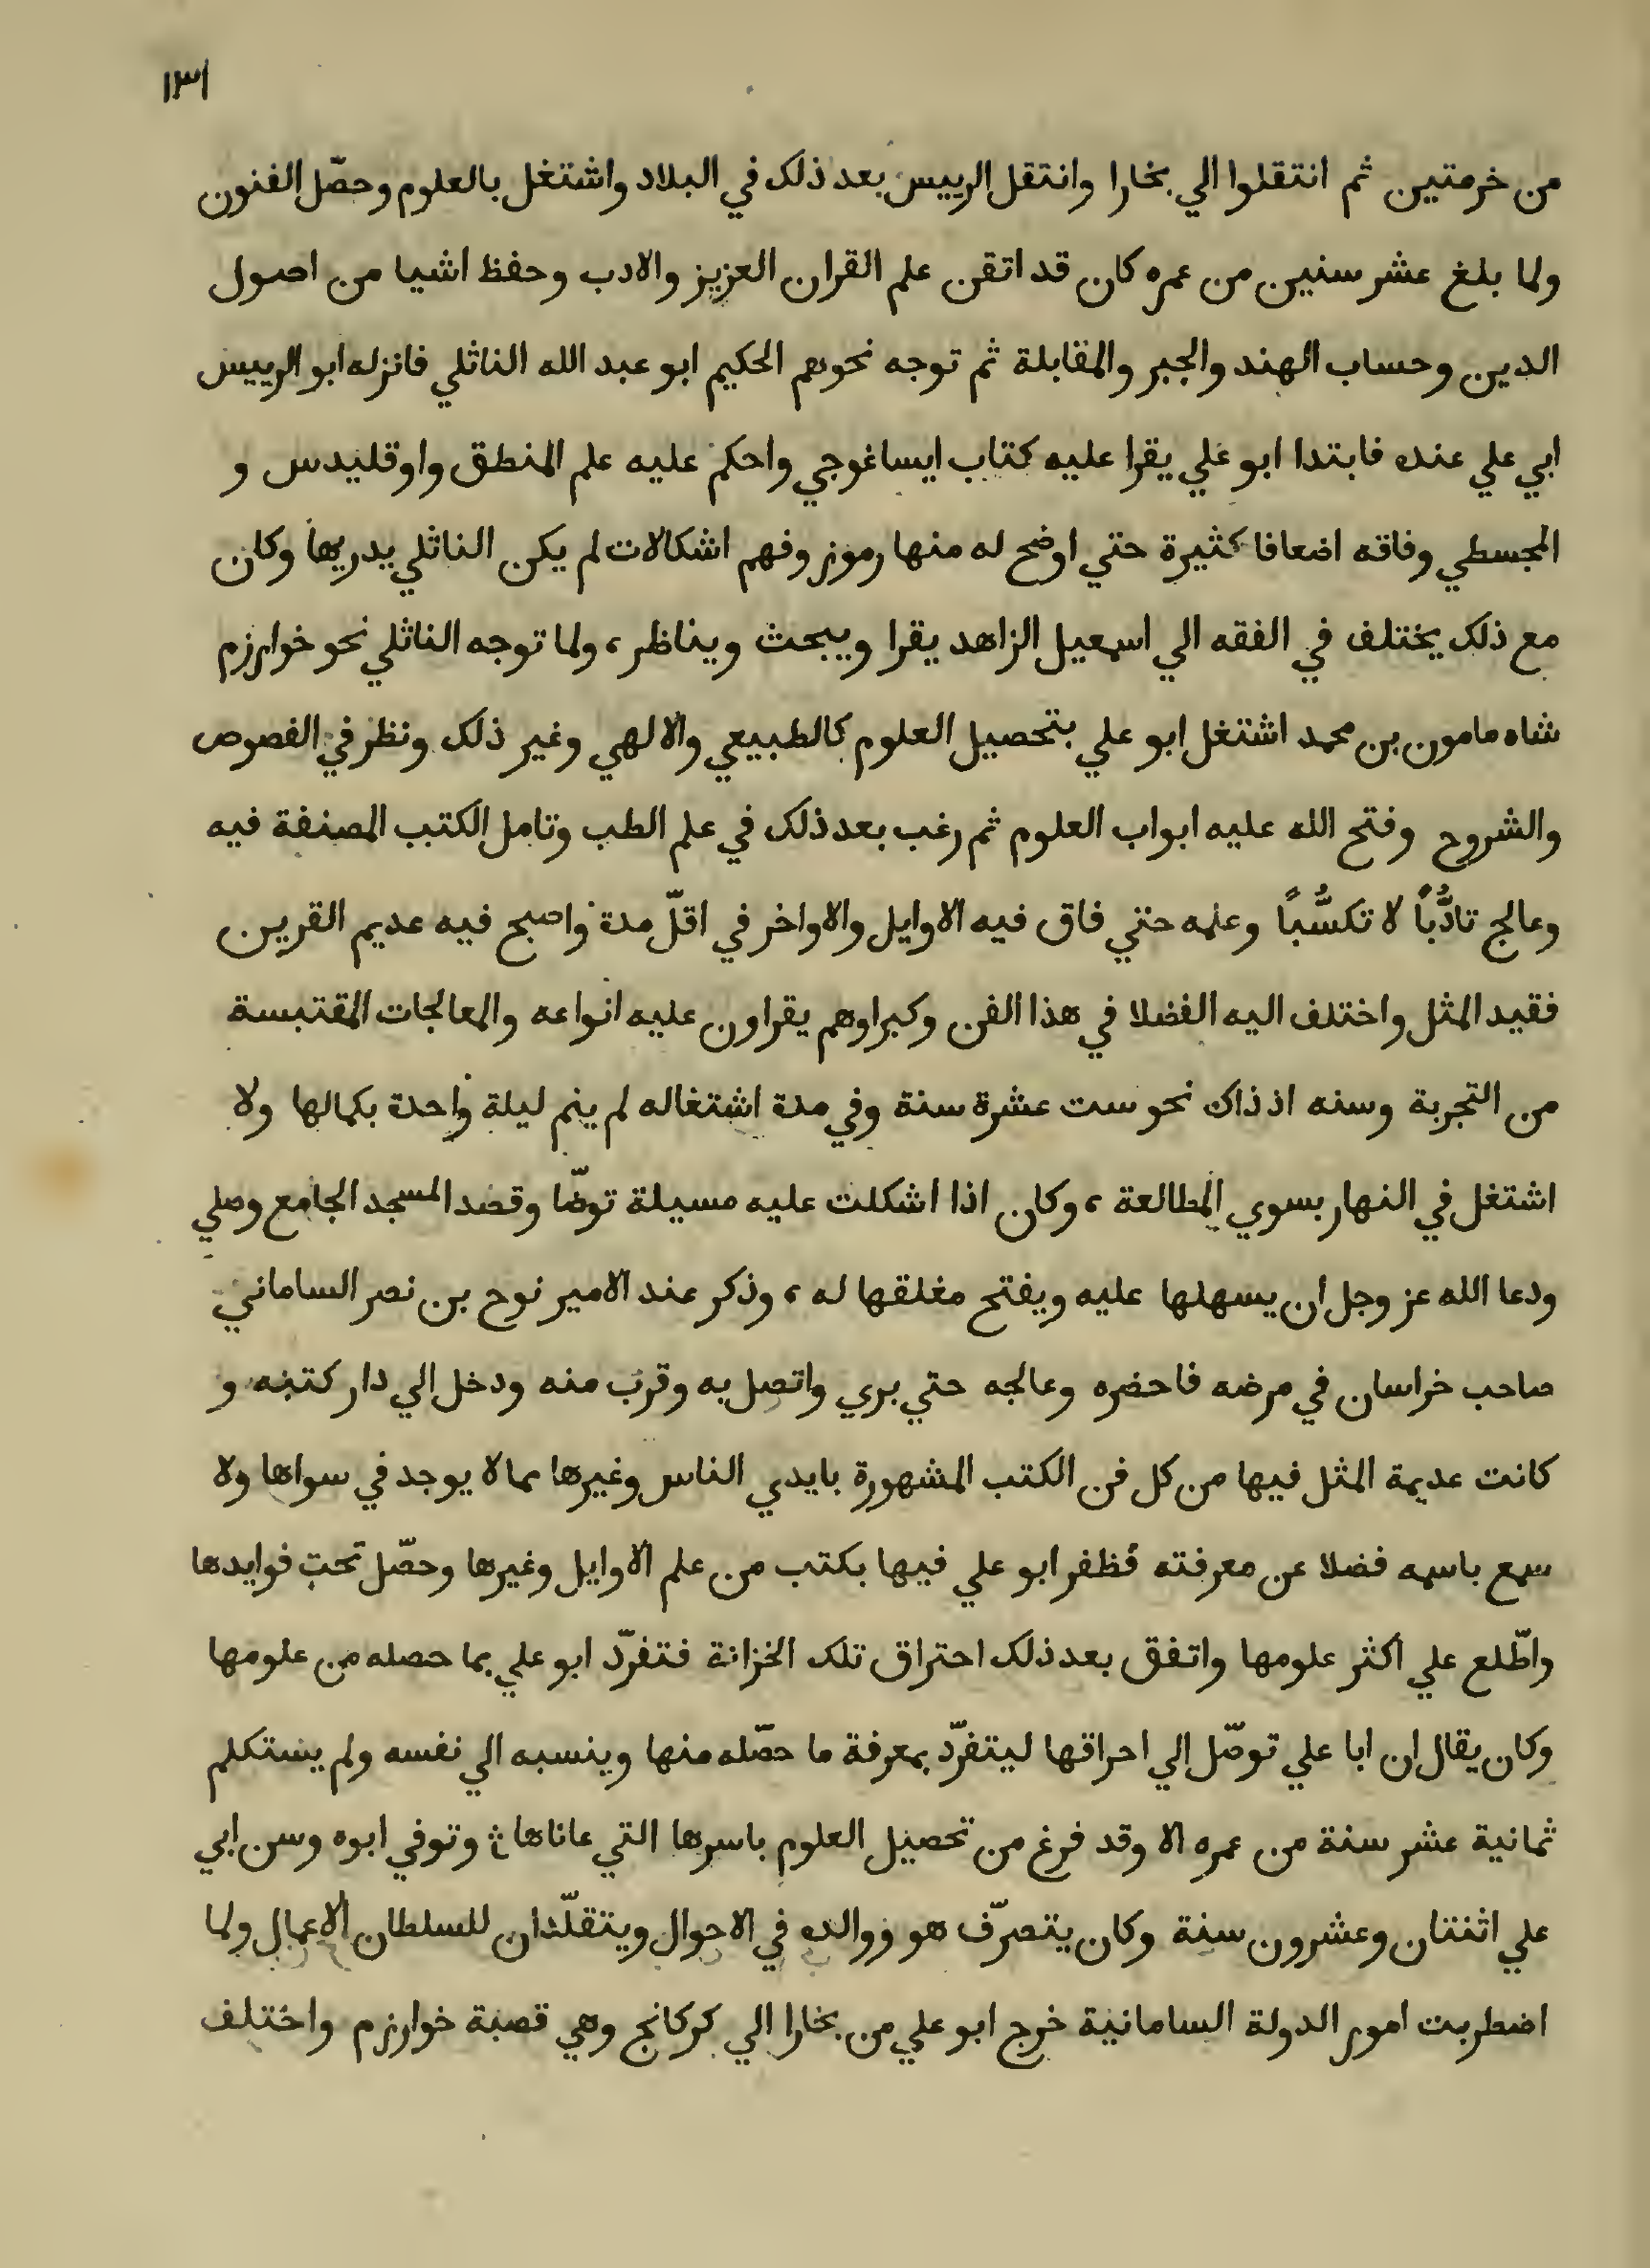 ١٣١
من خرمتين ثم انتقلوا الي بخارا وانتقل الرييس بعد ذلك في البلاد واشتغل بالعلوم وحصّل الفنون
ولما بلغ عشر سنين من عمره كان قد اتقن علم القران العزيز والادب وحفظ اشيا من اصول
الدين وحساب الهند والجبر والمقابلة ثم توجه نحوهم الحكيم ابو عبد الله الناثلي فانزله ابو الرييس
ابي علي عنده فابتدا ابو علي يقرا عليه كتاب ايساغوجي واحكم عليه علم المنطق واوقليدس و
المجسطي وفاقه اضعافا كثيرة حتي اوضح له منها رموز وفهم اشكالات لم يكن الناثلي يدريها وكان
مع ذلك يختلف في الفقه الي اسمعيل الزاهد يقرا ويبحث ويناظر، ولما توجه الناثلي نحو خوارزم
شاه مامون بن محمد اشتغل ابو علي بتحصيل العلوم كالطبيعي والالهي وغير ذلك ونظر في الفصوص
والشروح وفتح الله عليه ابواب العلوم ثم رغب بعد ذلك في علم الطب وتامل الكتب المصنفة فيه
وعالج تادُّباً لا تكسُّباً وعلمه حتي فاق فيه الاوايل والاواخر في اقلّ مدة واصبح فيه عديم القرين
فقيد المثل واختلف اليه الفضلا في هذا الفن وكبراوهم يقراون عليه انواعه والمعالجات المقتبسة
من التجربة وسنه اذ ذاك نحو ست عشرة سنة وفي مدة اشتغاله لم ينم ليلة واحدة بكمالها ولا
اشتغل في النهار بسوي المطالعة، وكان اذا اشكلت عليه مسيلة توضّا وقصد المسجد الجامع وصلي
ودعا الله عز وجل ان يسهلها عليه ويفتح مغلقها له، وذكر عند الامير نوح بن نصر الساماني
صاحب خراسان في مرضه فاحضره وعالجه حتي بري واتصل به وقرب منه ودخل الي دار كتبه و
كانت عديمة المثل فيها من كل فن الكتب المشهورة بايدي الناس وغيرها مما لا يوجد في سواها ولا
سمع باسمه فضلا عن معرفته فظفر ابو علي فيها بكتب من علم الاوايل وغيرها وحصّل تحب فوايدها
واطّلع علي اكثر علومها واتفق بعد ذلك احتراق تلك الخزانة فتفرّد ابو علي بما حصله من علومها
وكان يقال ان ابا علي توصّل الي احراقها ليتفرّد بمعرفة ما حصّله منها وينسبه الي نفسه ولم يستكلم
ثمانية عشر سنة من عمره الا وقد فرغ من تحصيل العلوم باسرها التي عاناها وتوفي ابوه وسن ابي
علي اثنتان وعشرون سنة وكان يتصرّف هو ووالده في الاحوال ويتقلّدان للسلطان الاعمال ولما
اضطربت امور الدولة السامانية خرج ابو علي من بخارا الي كركانج وهي قصبة خوارزم واختلف